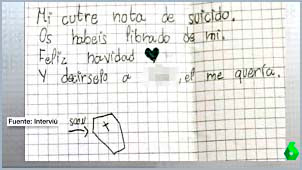 Mi cutre nota de suicido.
Os habeis librado de mi.
Feliz navidad
Y decirselo a , el me quería.
Fuente: Interviú